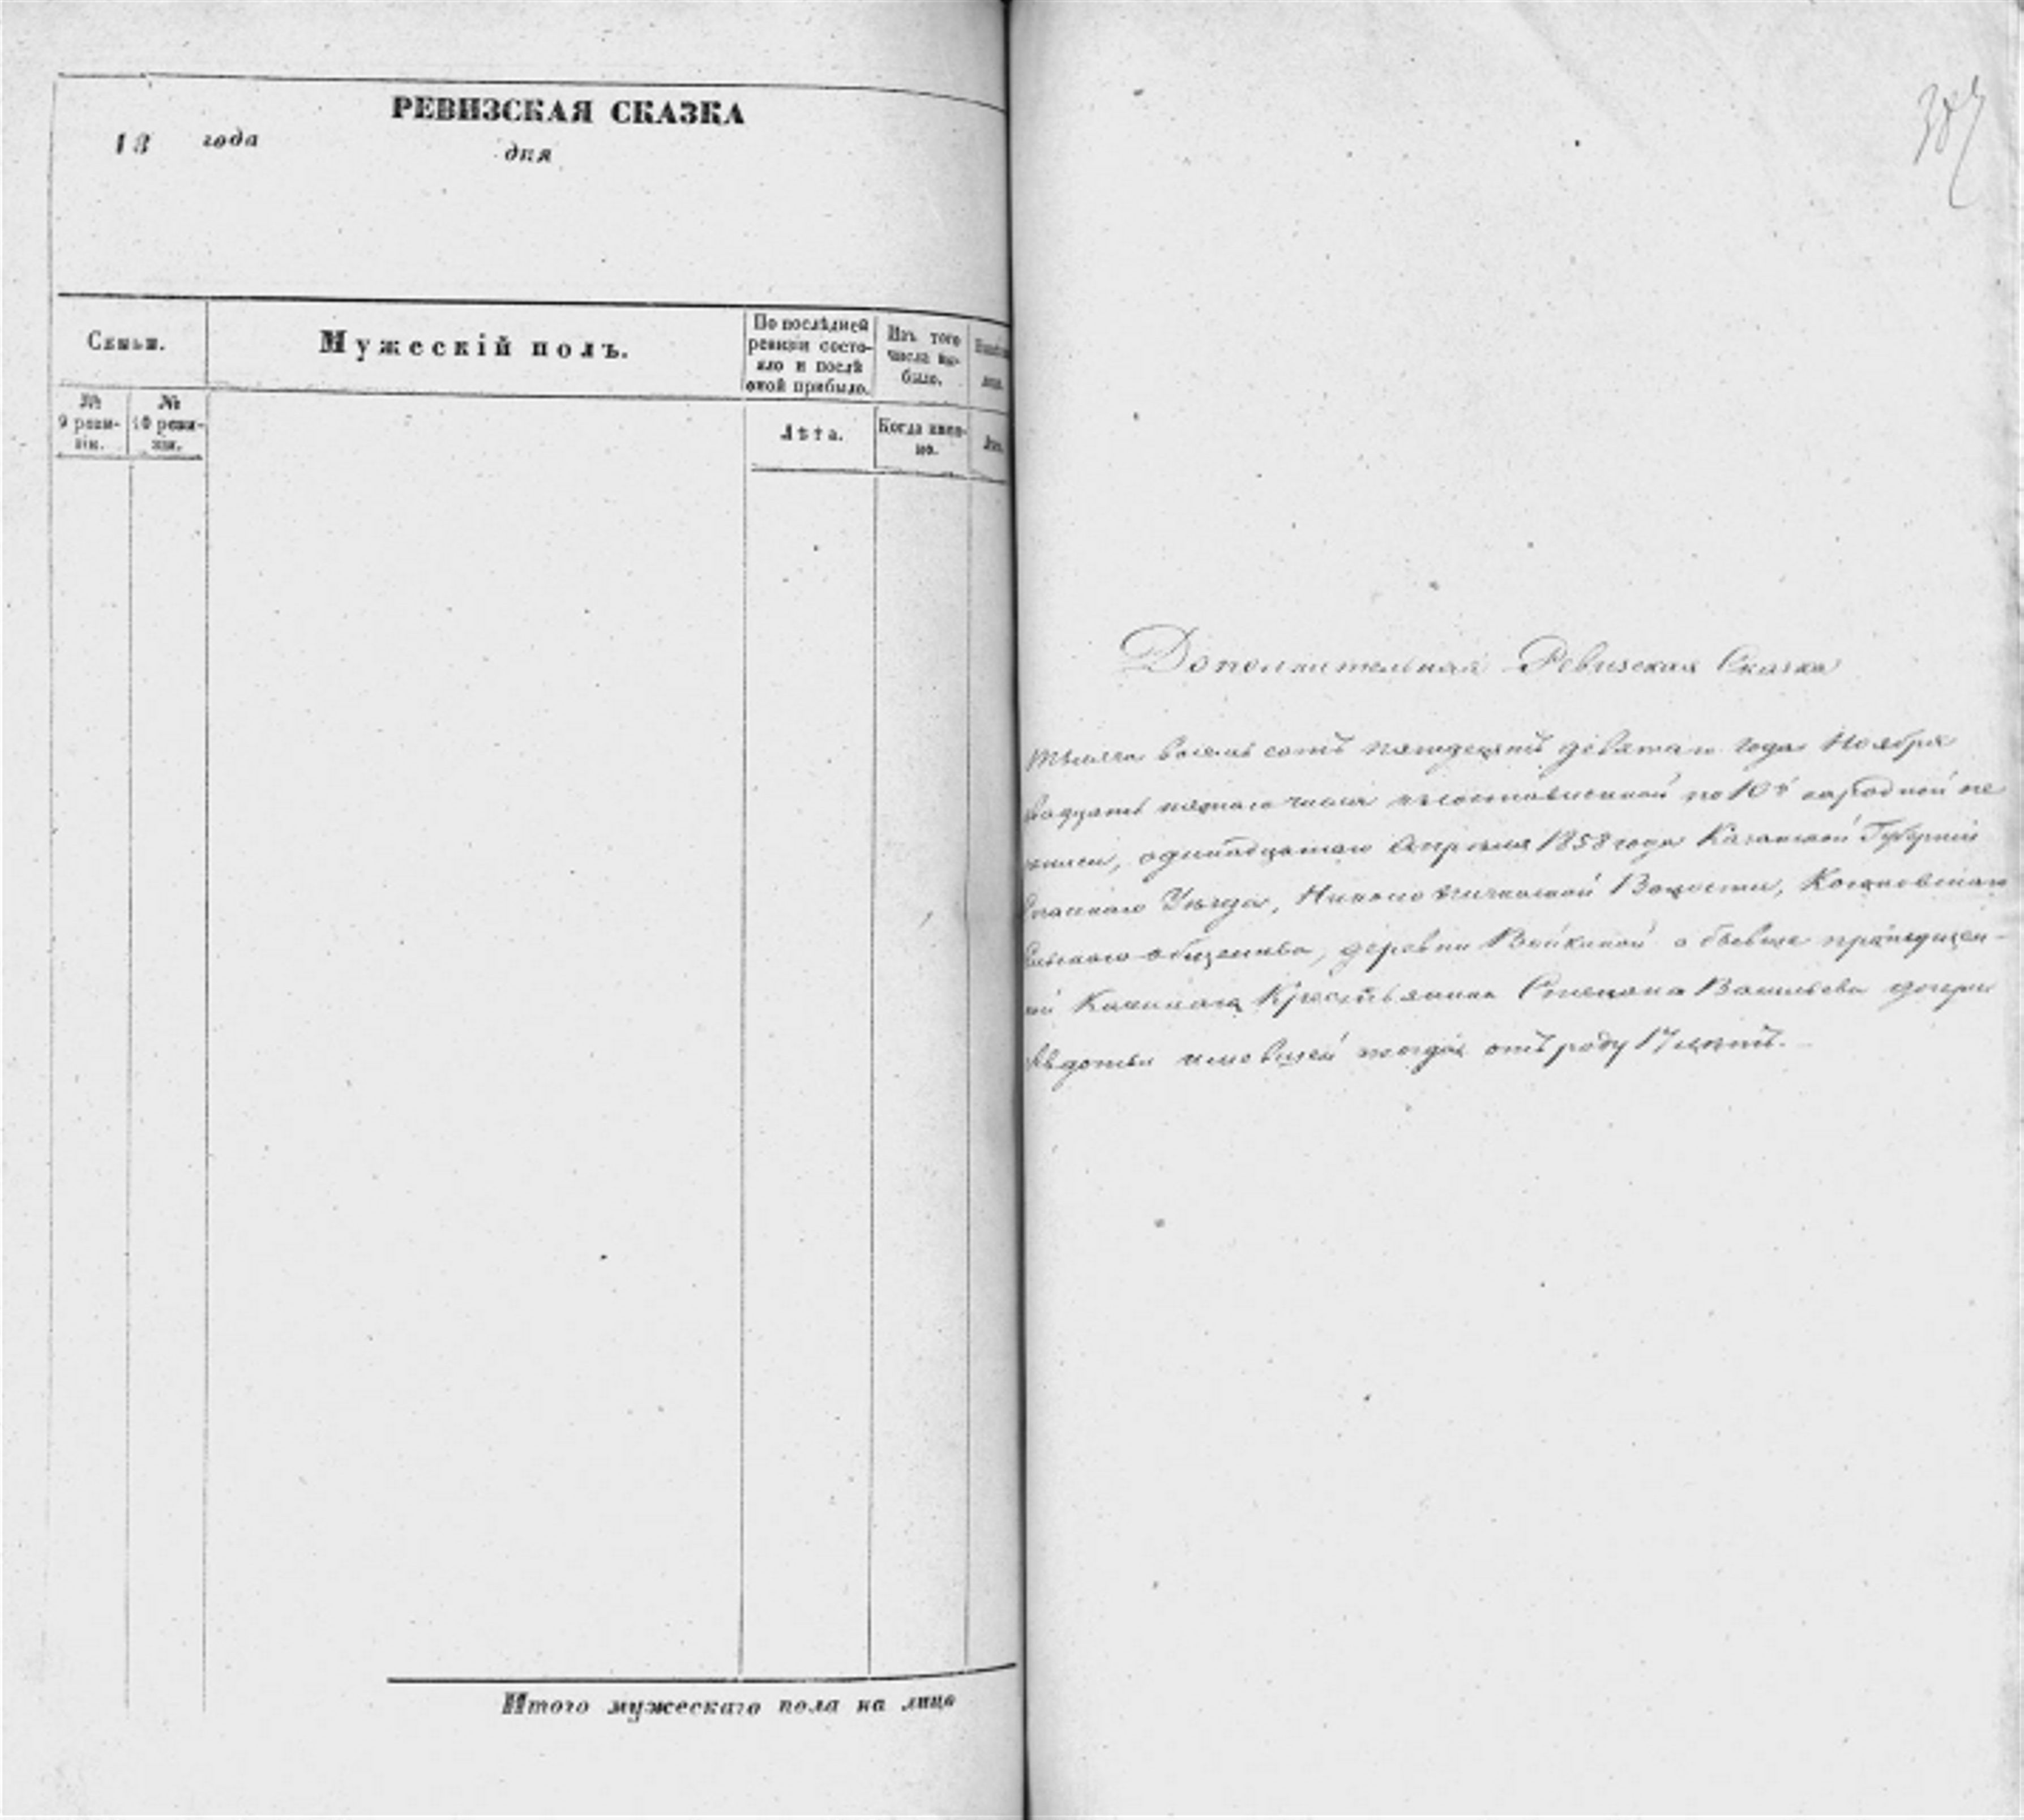 РЕВИЗСКАЯ СКАЗКА
18 года
дня
Семьи.
Мужескій полъ.
По послѣдней
ревизіи состо-
яло и послѣ
оной прибыло.
Изъ того
числа вы-
было.
№
9 реви-
зіи.
№
10 реви-
зіи.
Лѣта.
Когда имен-
но.
Итого мужескаго пола на лицо
Дополнительная Ревизская Сказка
тысяча восемь сотъ пятьдесятъ девятаго года Ноября
двадцать пятаго числа по 10й народной пе
реписи, одинадцатаго Апрѣля 1858 года Казанской Губерніи
Спаскаго Уѣзда, Волости,
общества, деревни о бывше пропущен-
ой Крестьянина Степана Васильева дочери
Авдотьи имевшей тогда отъ роду 17 лѣтъ.